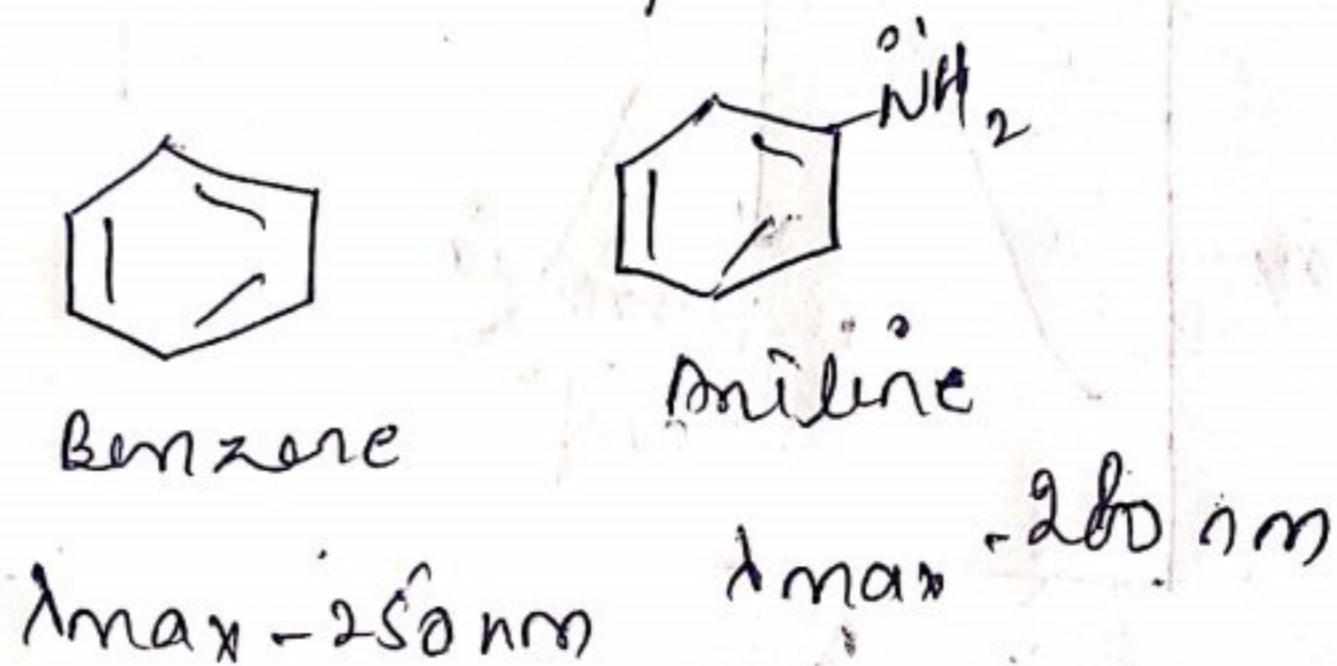 N̈H2
Benzene
Aniline
λmax - 250 nm
λmax - 280 nm